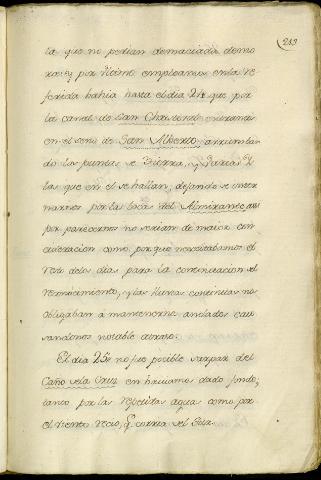 213
la que no pedian demaciada demo
ra; y por ultimo empleamos en la re
ferida bahia hasta el dia 24 que por
la canal de San Christoval entramos
en el seno de San Alberto arrumban
do las puntas de tierra, y varias Ys
las que en él se hallan, dejando de inter
narnos por la boca del Almirante, assi
por parecernos no serian de maior con
cideracion como por que necesitabamos el
resto de los dias para la continuacion del
reconocimiento, y las lluvias continuas nos
obligaban a mantenernos anclados cau
sandonos notable atraso.
El dia 25 no fue posible zarpar del
Caño de la Cruz en haviamos dado fondo,
tanto por la repetida agua como por
el viento recio, q. corria del Sur.